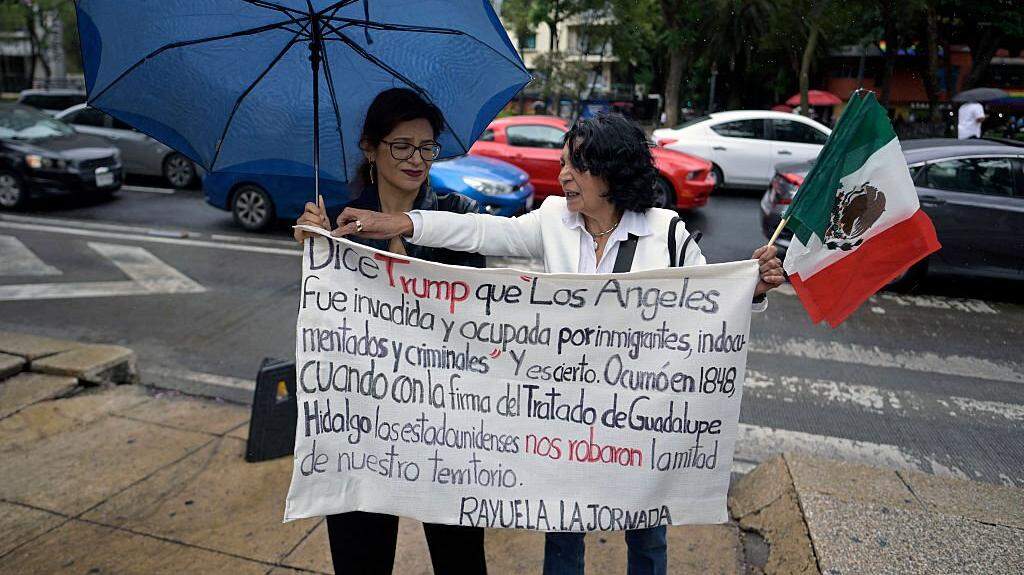 Dice Trump que "Los Angeles
Fue invadida y ocupada por inmigrantes, indocu-
mentados y criminales" Y es cierto. Ocurrió en 1848,
cuando con la firma del Tratado de Guadalupe
Hidalgo los estadounidenses nos robaron la mitad
de nuestro territorio.
RAYUELA. LA JORNADA